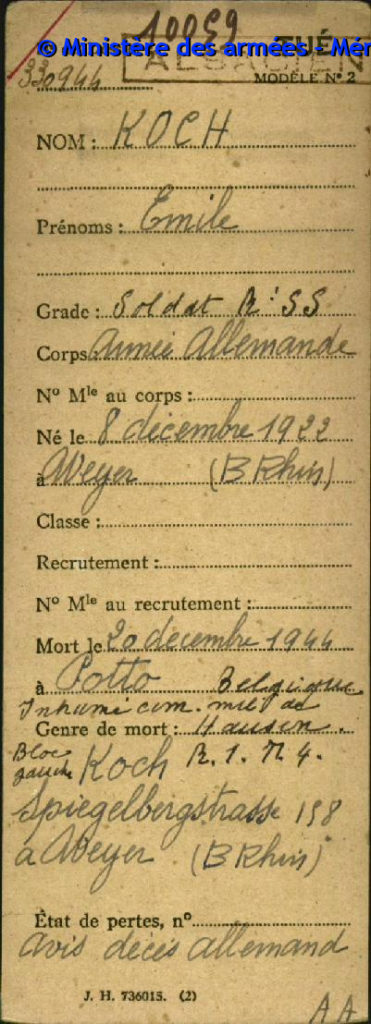 10059
© Ministère des armées - Mém
TUÉ
ALSACIEN
330944
MODÈLE Nº 2
NOM : KOCH
Prénoms : Emile
Grade : Soldat R: SS
Corps : Armée Allemande
Nº Mle au corps :
Né le 8 décembre 1922
à Weyer (B Rhin)
Classe :
Recrutement :
Nº Mle au recrutement :
Mort le 20 décembre 1944
à Potto Belgique
Inhumé cim. mil. de
Genre de mort : Hausen.
Bloc gauche R. 1. N 4.
Koch
Spiegelbergstrasse 198
à Weyer (B Rhin)
État de pertes, nº
avis décès allemand
J. H. 736015. (2)
A A